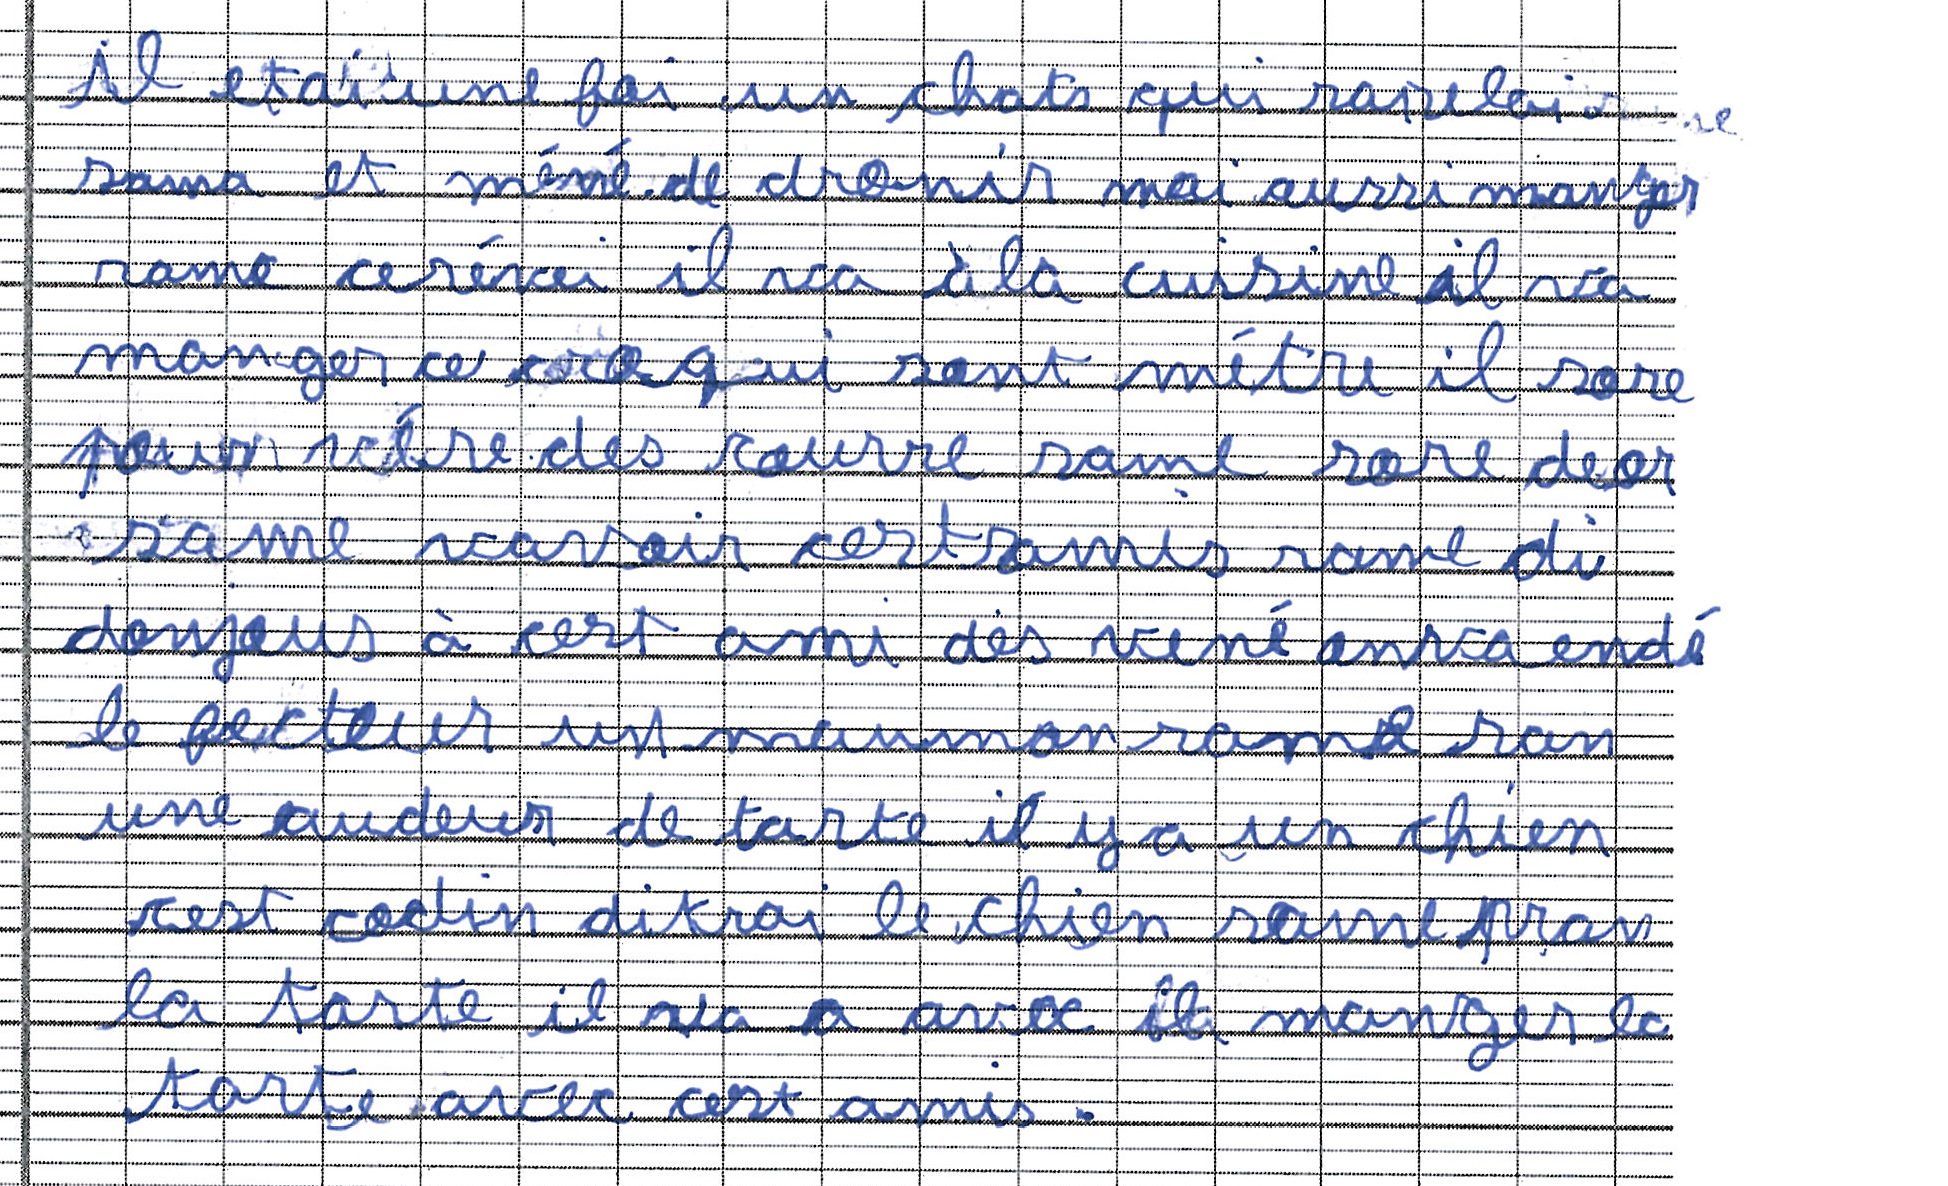 il etai une foi un chats qui sapelai
sama et mémé de dromir mai aussi manger
same cerévei il va à la cuisine il va
manger ce croqui sont métre il sore
pour vétre des courre same sore deor
same vavoir cert amis same di
donjous à cert ami dés vené anva endé
le fecteur un maumon same san
une audeur de tarte il y a un chien
cest codin ditrai le chien same pran
la tarte il va a avec il manger la
tarte avec cest amis.